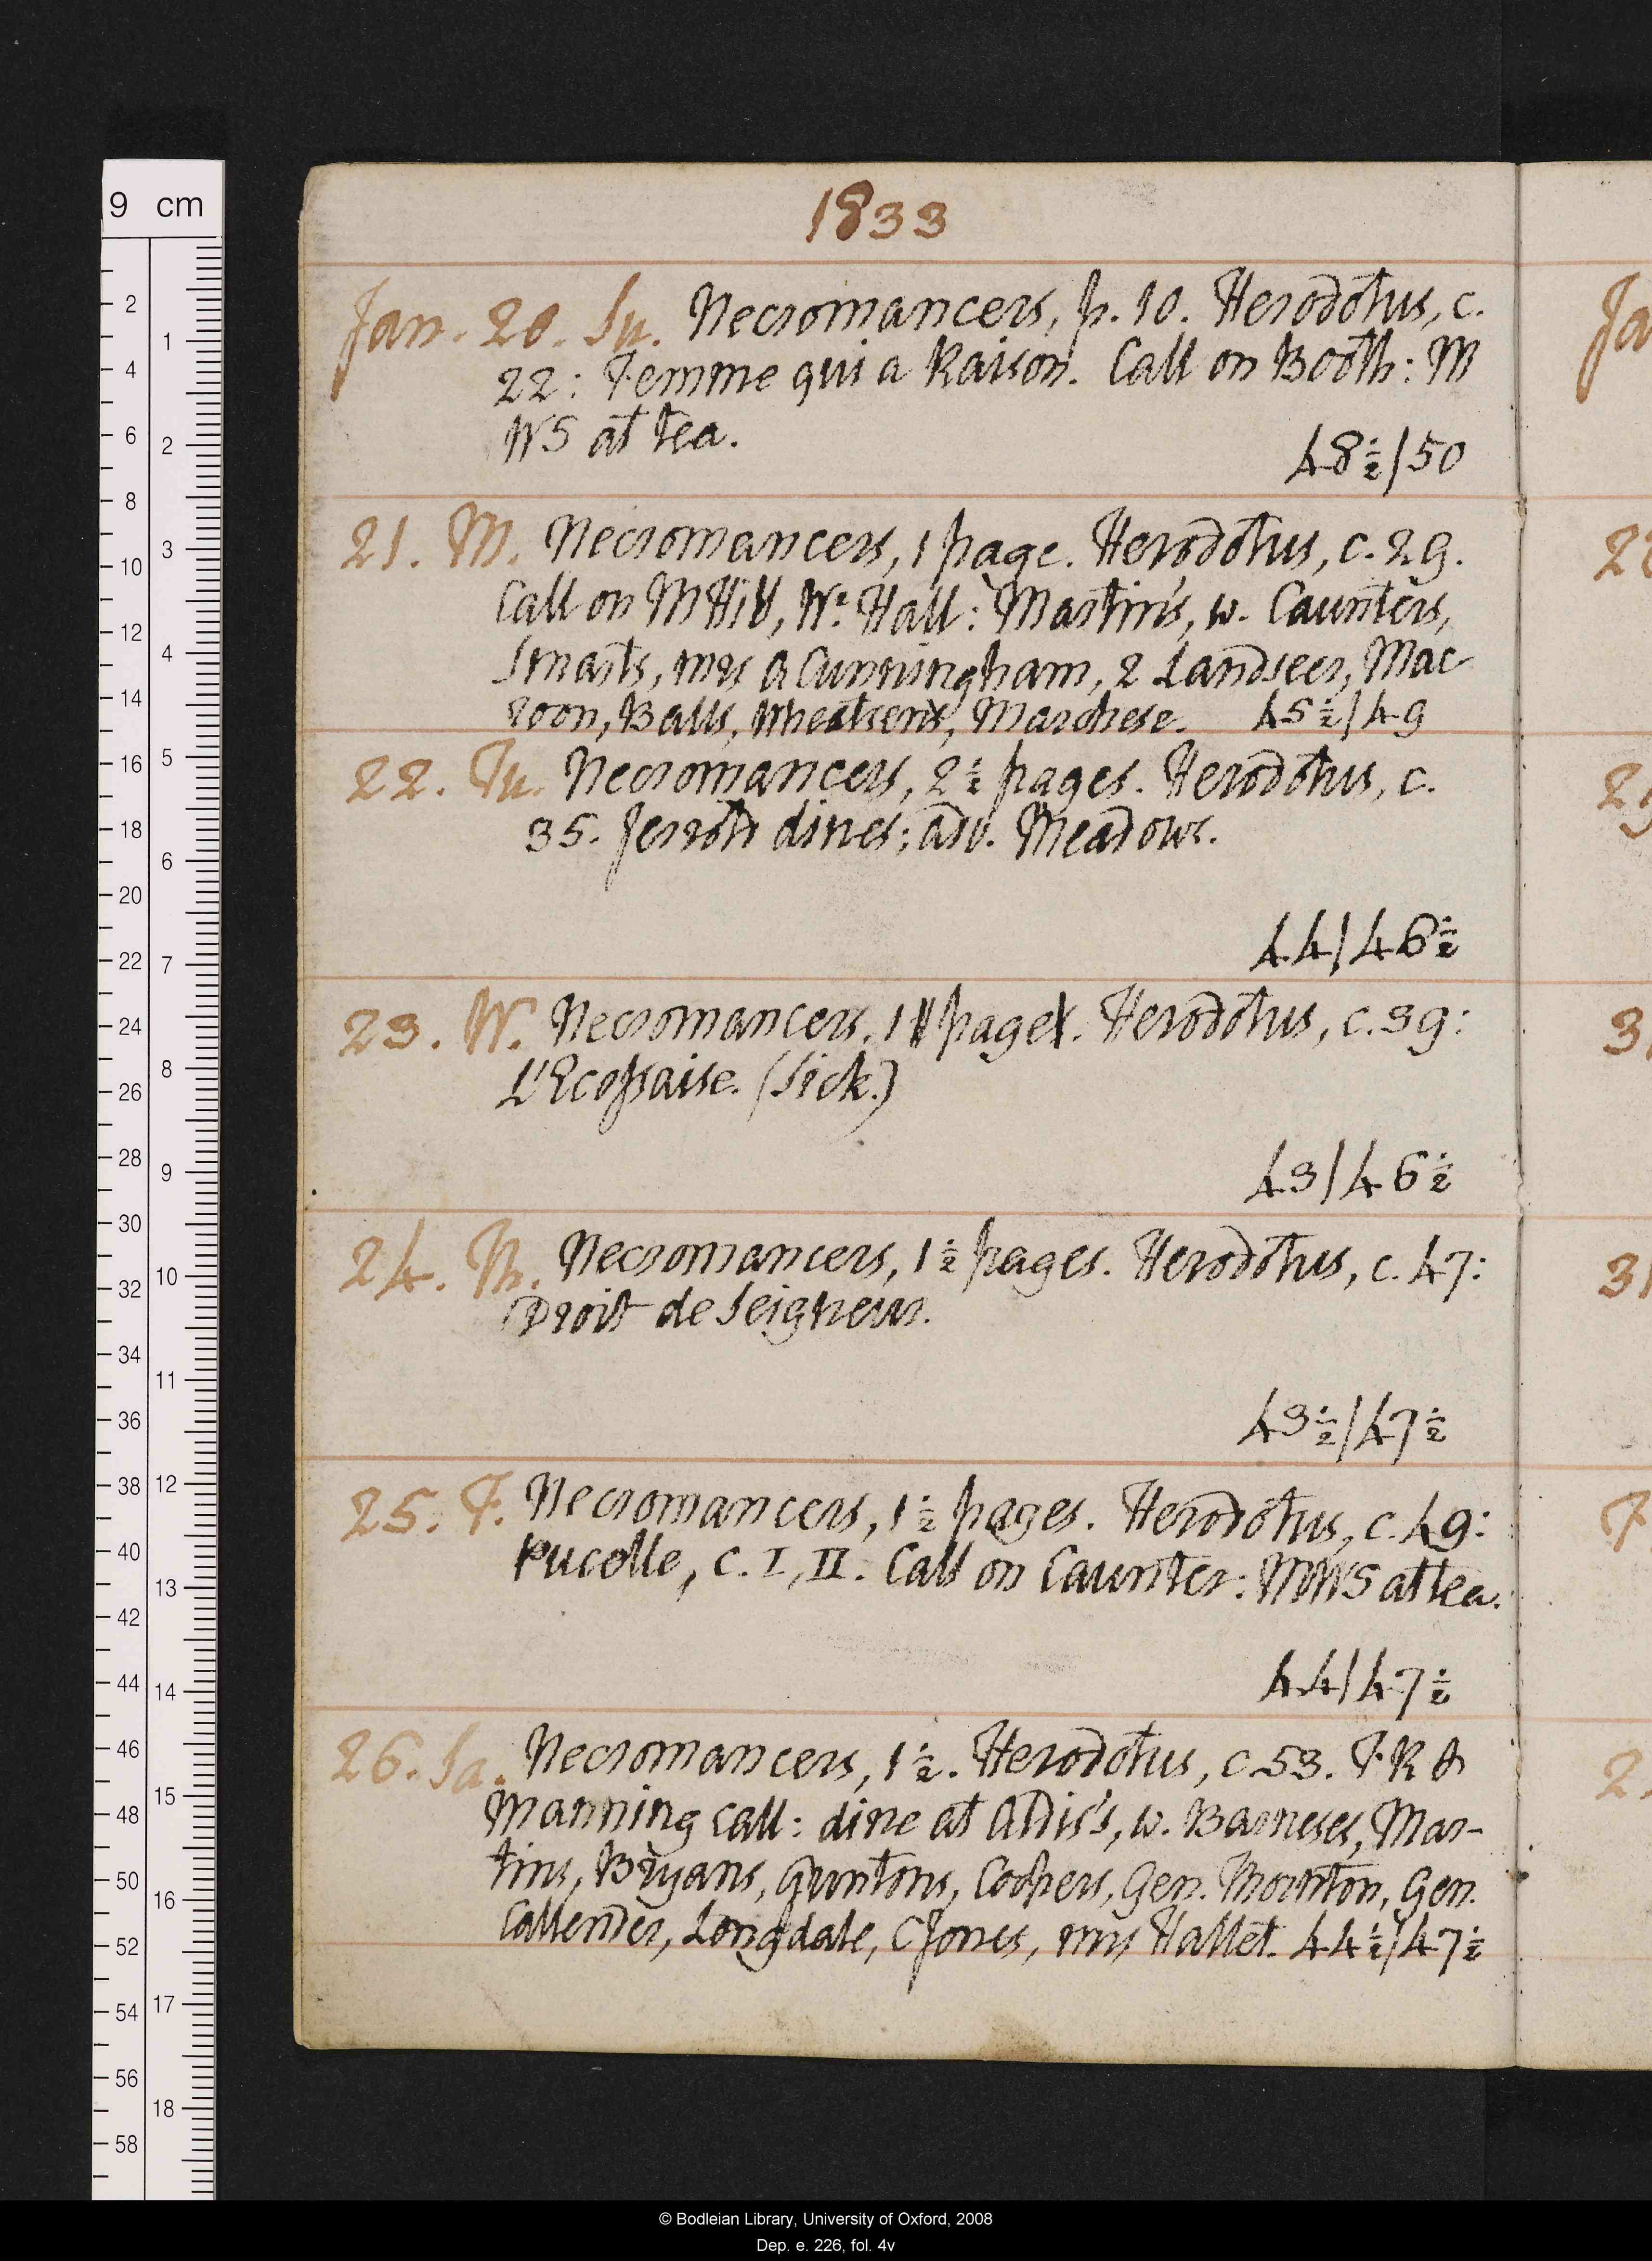 1833
Jan. 20. Su. Necromancers, p. 10. Herodotus, c.
22: Femme qui a Raison. Call on Booth: M
WS at tea.
48½/50
21. M. Necromancers, 1 page. Herodotus, c. 29.
Call on M Hill, Wr Hall: Martin's, w. Caunters,
Smarts, mrs A Cunningham, 2 Landseers, Mac
roon, Balls, Wheatsens, Marchese. 45½/49
22. Tu. Necromancers, 2½ pages. Herodotus, c.
35. Jerrold dines; adv. Meadows.
44/46½
23. W. Necromancers, 1 page. Herodotus, c. 39:
L'Ecossaise. (Sick.)
43/46½
24. Th. Necromancers, 1½ pages. Herodotus, c. 47:
Droit de Seigneur.
43½/47½
25. F. Necromancers, 1½ pages. Herodotus, c. 49:
Pucelle, c. I, II. Call on Caunter: MWS at tea.
44/47½
26. Sa. Necromancers, 1½. Herodotus, c. 53. F. R &
Manning call: dine at Addis's, w. Barneses, Mar-
tins, Bryans, Guntons, Coopers, Gen. Thornton, Gen.
Callender, Longdale, C Jones, miss Hallet. 44½/47½
9 cm
© Bodleian Library, University of Oxford, 2008
Dep. e. 226, fol. 4v